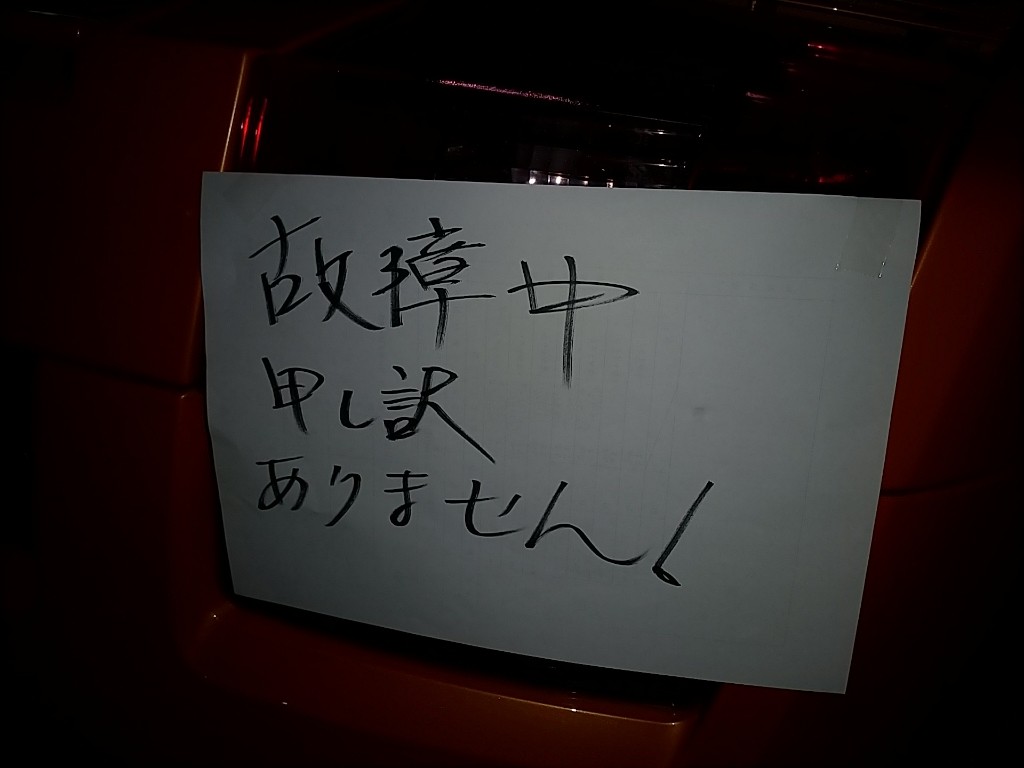 故障中
申し訳
ありません!